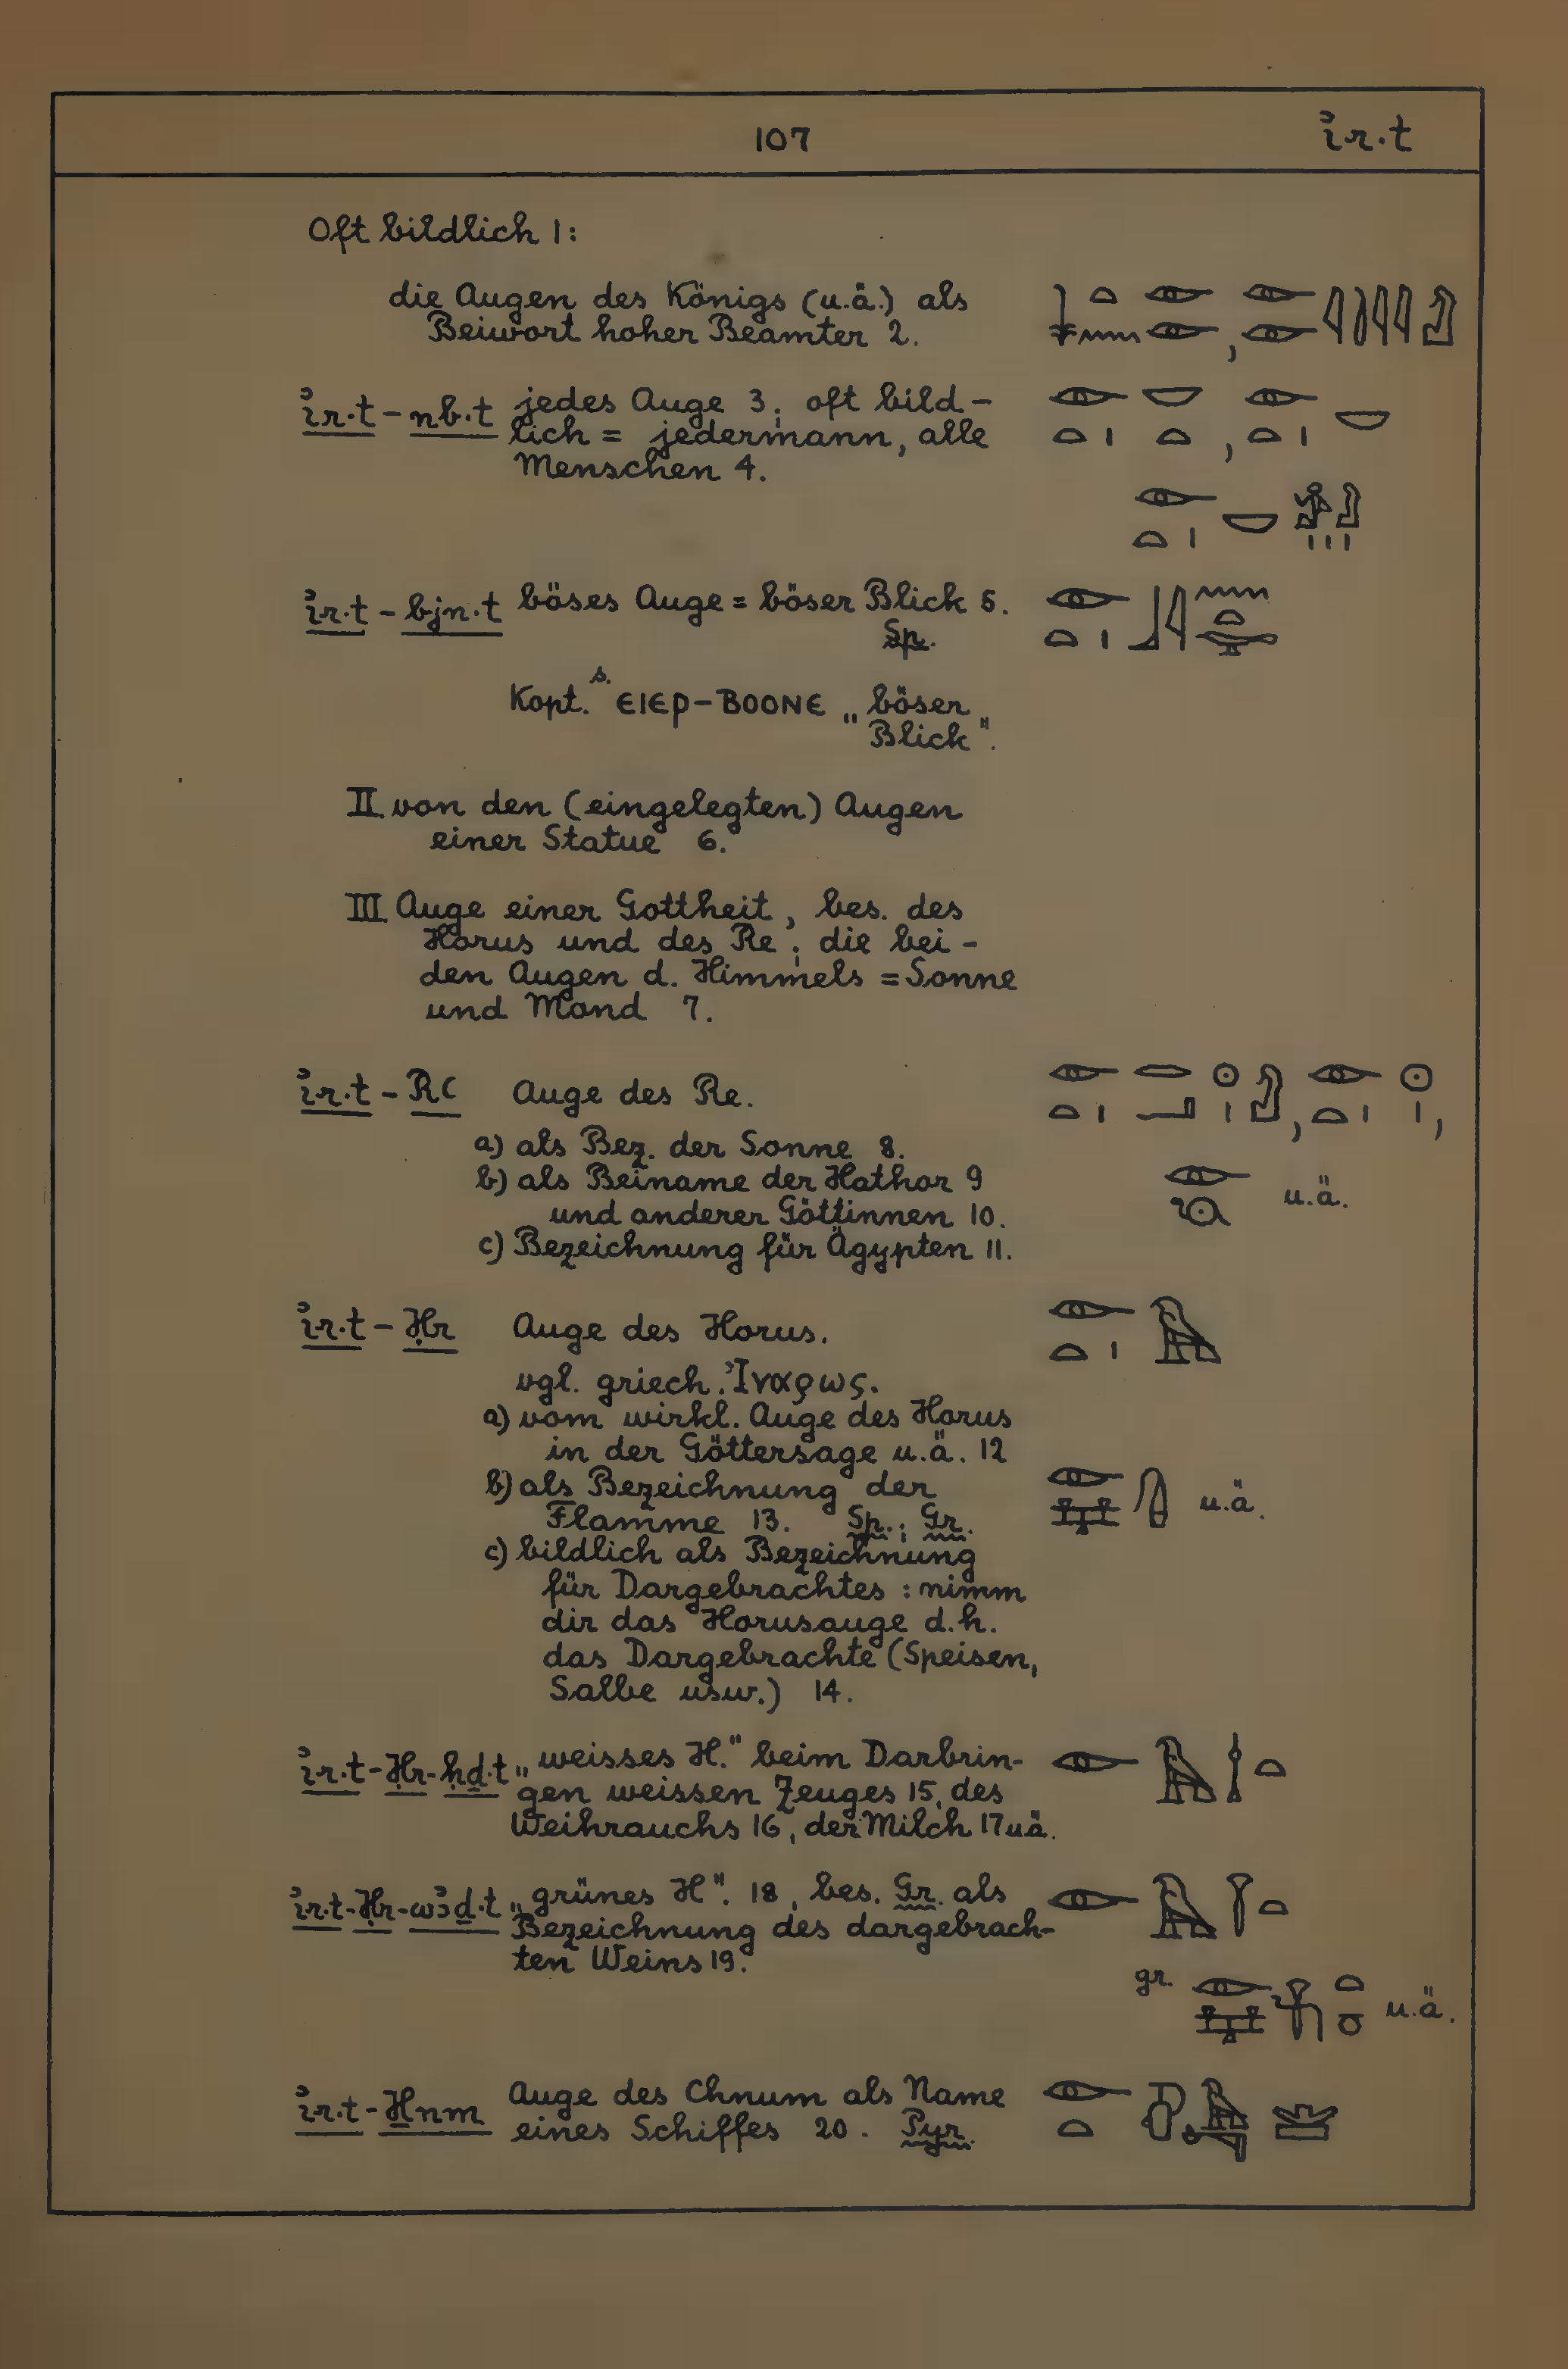 107 ı͗r.t
Oft bildlich 1:
die Augen des Königs (u.ä.) als
Beiwort hoher Beamter 2.
ı͗r.t - nb.t jedes Auge 3; oft bild-
lich = jedermann, alle
Menschen 4.
ı͗r.t - bjn.t böses Auge = böser Blick 5.
Sp.
Kopt. s. ⲉⲓⲉⲣ-ⲃⲟⲟⲛⲉ „böser
Blick".
II. von den (eingelegten) Augen
einer Statue 6.
III. Auge einer Gottheit, bes. des
Horus und des Re; die bei-
den Augen d. Himmels = Sonne
und Mond 7.
ı͗r.t - Rꜥ Auge des Re.
a) als Bez. der Sonne 8.
b) als Beiname der Hathor 9
und anderer Göttinnen 10. u.ä.
c) Bezeichnung für Ägypten 11.
ı͗r.t - Ḥr Auge des Horus.
vgl. griech. Ἰναρως.
a) vom wirkl. Auge des Horus
in der Göttersage u.ä. 12
b) als Bezeichnung der
Flamme 13. Sp.; Gr. u.ä.
c) bildlich als Bezeichnung
für Dargebrachtes: nimm
dir das Horusauge d.h.
das Dargebrachte (Speisen,
Salbe usw.) 14.
ı͗r.t-Ḥr-ḥḏ.t „weisses H." beim Darbrin-
gen weissen Zeuges 15, des
Weihrauchs 16, der Milch 17 u.ä.
ı͗r.t-Ḥr-wꜣḏ.t „grünes H". 18, bes. Gr. als
Bezeichnung des dargebrach-
ten Weins 19.
gr. u.ä.
ı͗r.t - H̱nm Auge des Chnum als Name
eines Schiffes 20. Pyr.